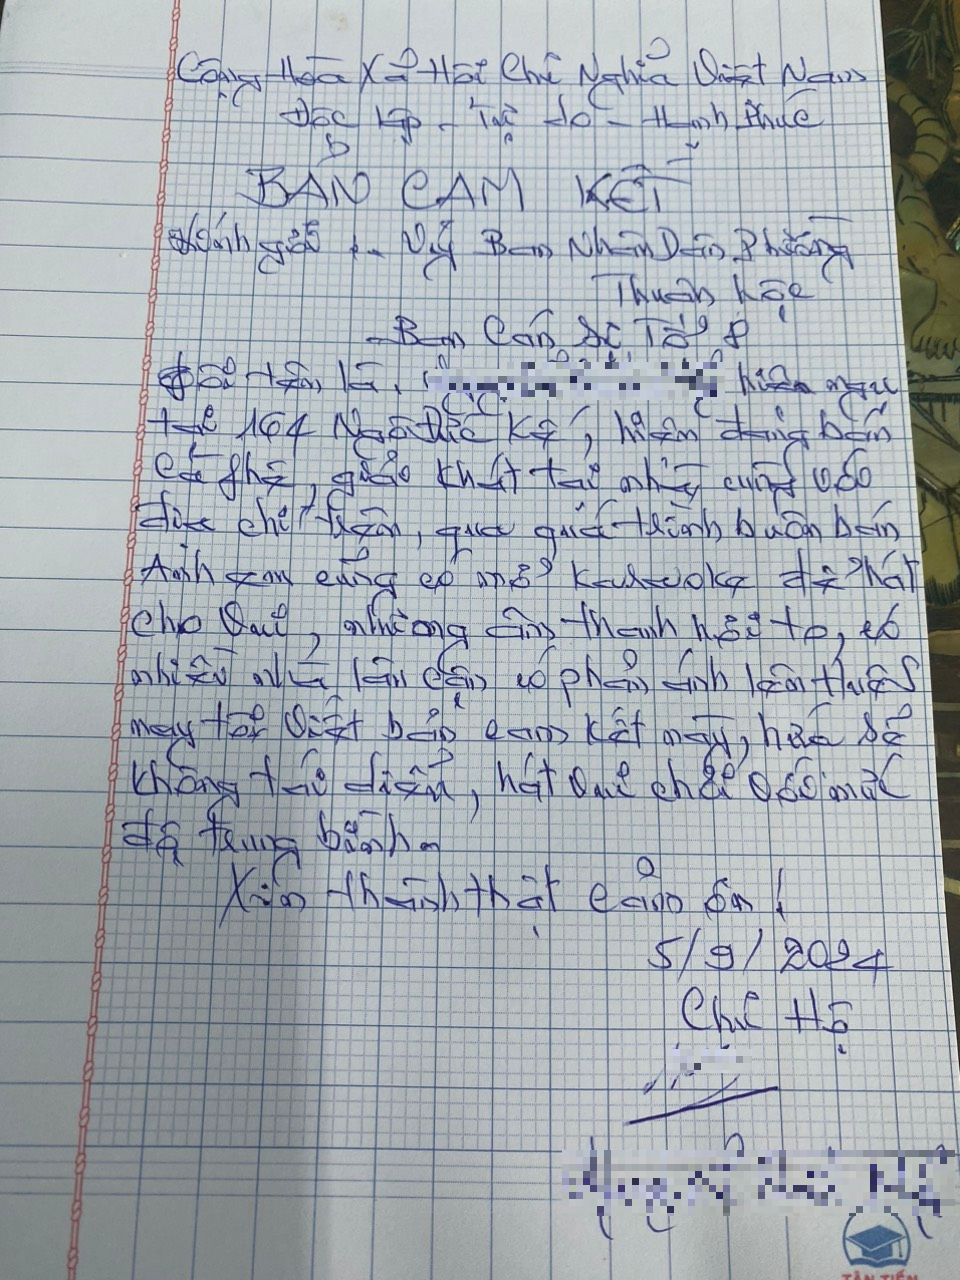 Cộng Hòa Xã Hội Chủ Nghĩa Việt Nam
Độc lập - Tự do - Hạnh Phúc
BẢN CAM KẾT
Kính gửi :- Uỷ Ban Nhân Dân Phường
Thuận Lộc
- Ban Cán Sự Tổ 8
Tôi tên là, hiện ngụ
tại 164 Ngô Đức Kế, hiện đang bán
Cà phê, giải khát tại nhà, cũng
địa chỉ trên, qua quá trình buôn bán
Anh em cũng có mở Karaoke để hát
cho Vui, nhưng âm thanh hơi to, có
nhiều nhà lân cận có phản ánh lên
nay tôi Viết bản cam kết này, hứa sẽ
không tái diễn, hát Vui chơi Với mức
độ trung bình.
Xin thành thật cảm ơn !
5/9/2024
Chủ Hộ
TÂN TIẾN